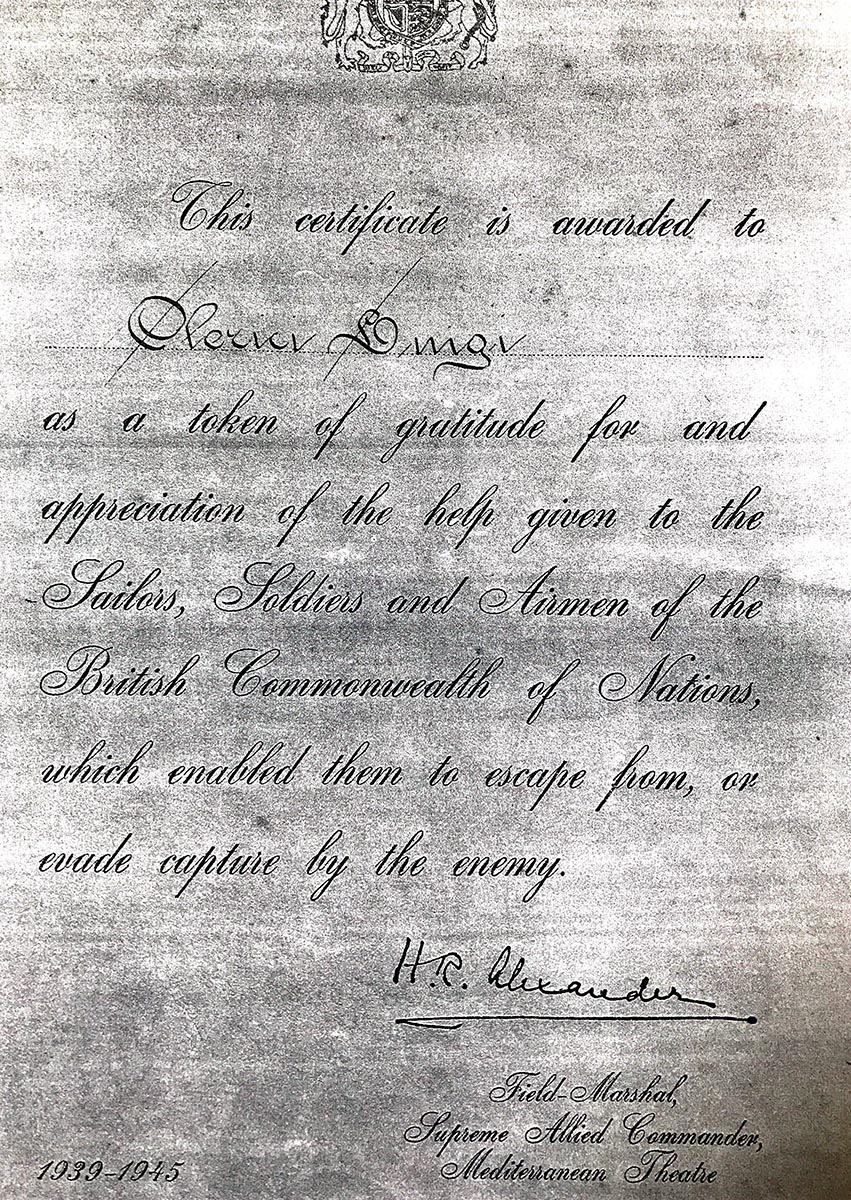 This certificate is awarded to
Clerici Luigi
as a token of gratitude for and
appreciation of the help given to the
Sailors, Soldiers and Airmen of the
British Commonwealth of Nations,
which enabled them to escape from, or
evade capture by the enemy.
H.R. Alexander
Field-Marshal,
Supreme Allied Commander,
Mediterranean Theatre
1939-1945